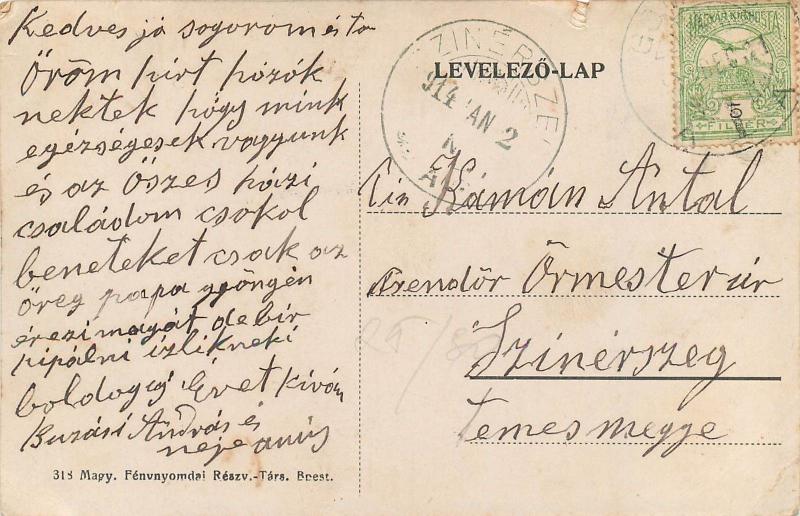 Kedves jó sogorom és ta
Öröm hírt hózók
nektek hógy mink
egézségesek vagyunk
és az Öszes házi
családom csokol
beneteket csak az
öreg papa gyöngén
érezi magát de bír
pipálni ízlik neki
boldog új Évet Kívón
Buzási András és
neje
318 Magy. Fénynyomdai Részv.-Társ. Bpest.
LEVELEZŐ-LAP
SZINÉRSZE
914 JAN 2
MAGYAR KIR. POSTA
FILLÉR
Cím Kámán Antal
Czendőr Örmester úr
Szinérszeg
temesmegye